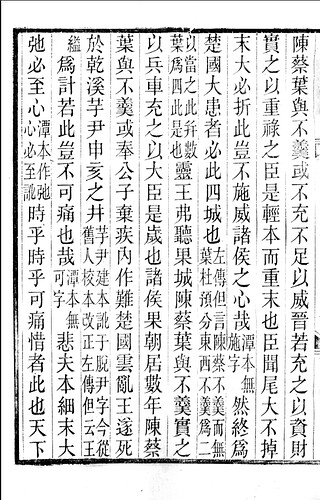 陳蔡葉與不羹或不充不足以威晉若充之以資財
實之以重祿之臣是輕本而重末也臣聞尾大不掉
末大必折此豈不施威諸侯之心哉潭本無施字然終為
楚國大患者必此四城也左傳但言陳蔡不羹而無葉杜預分東西不羹為二
以當之此并數葉為四此是也靈王弗聽果城陳蔡葉與不羹實之
以兵車充之以大臣是歲也諸侯果朝居數年陳蔡
葉與不羹或奉公子棄疾內作難楚國雲亂王遂死
於乾溪芋尹申亥之井芋尹建本訛于脫尹字今從舊人校本改正左傳但云王
縊為計若此豈不可痛也哉潭本無可字悲夫本細末大
弛必至心潭本作弛心必至訛時乎時乎可痛惜者此也天下